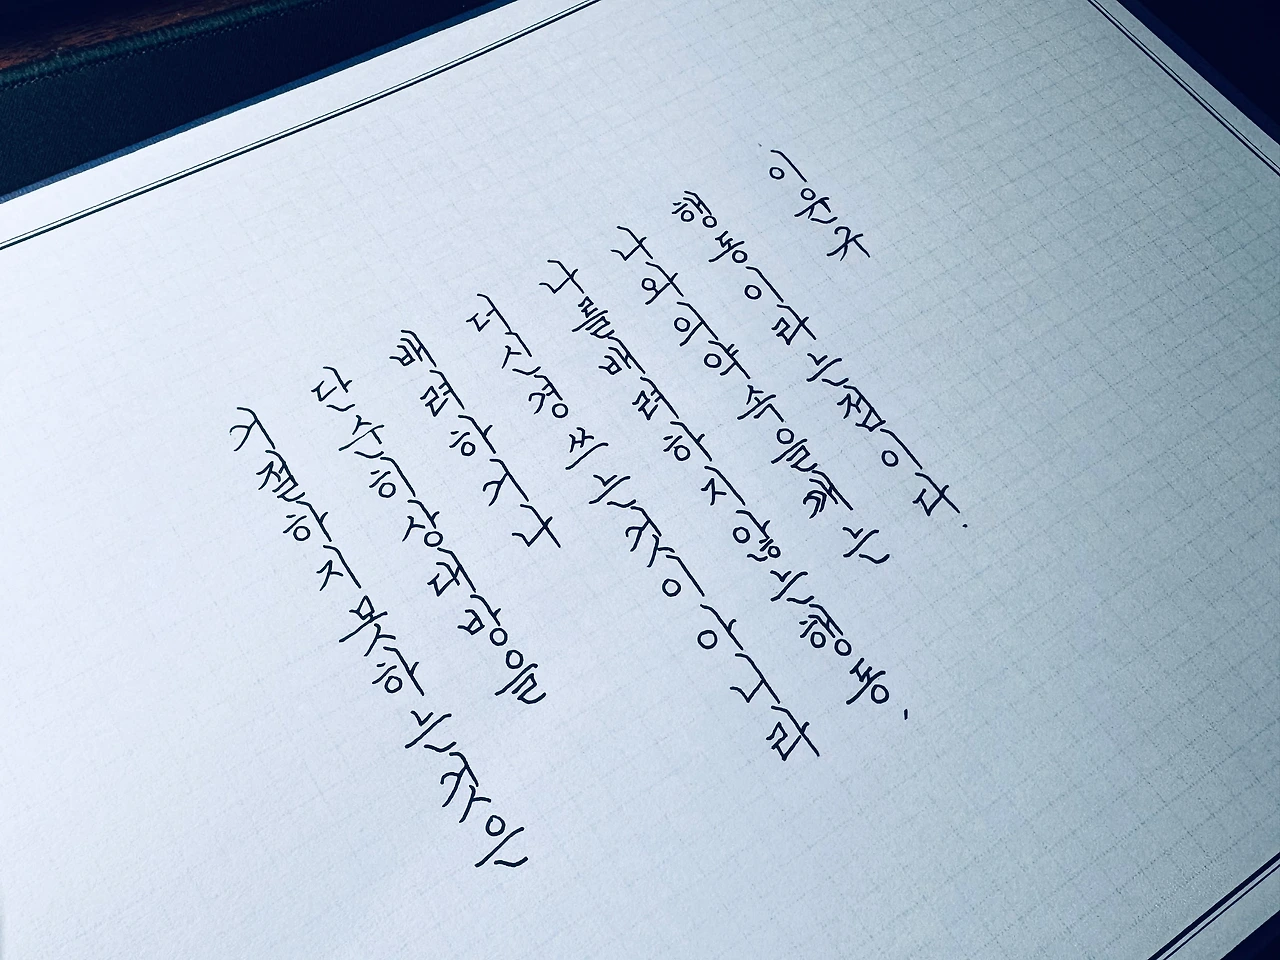 거절하지못하는것은
단순히상대방을
배려하거나
더신경쓰는것이아니라
나를배려하지않는행동,
나와의약속을깨는
행동이라는점이다.
이윤규